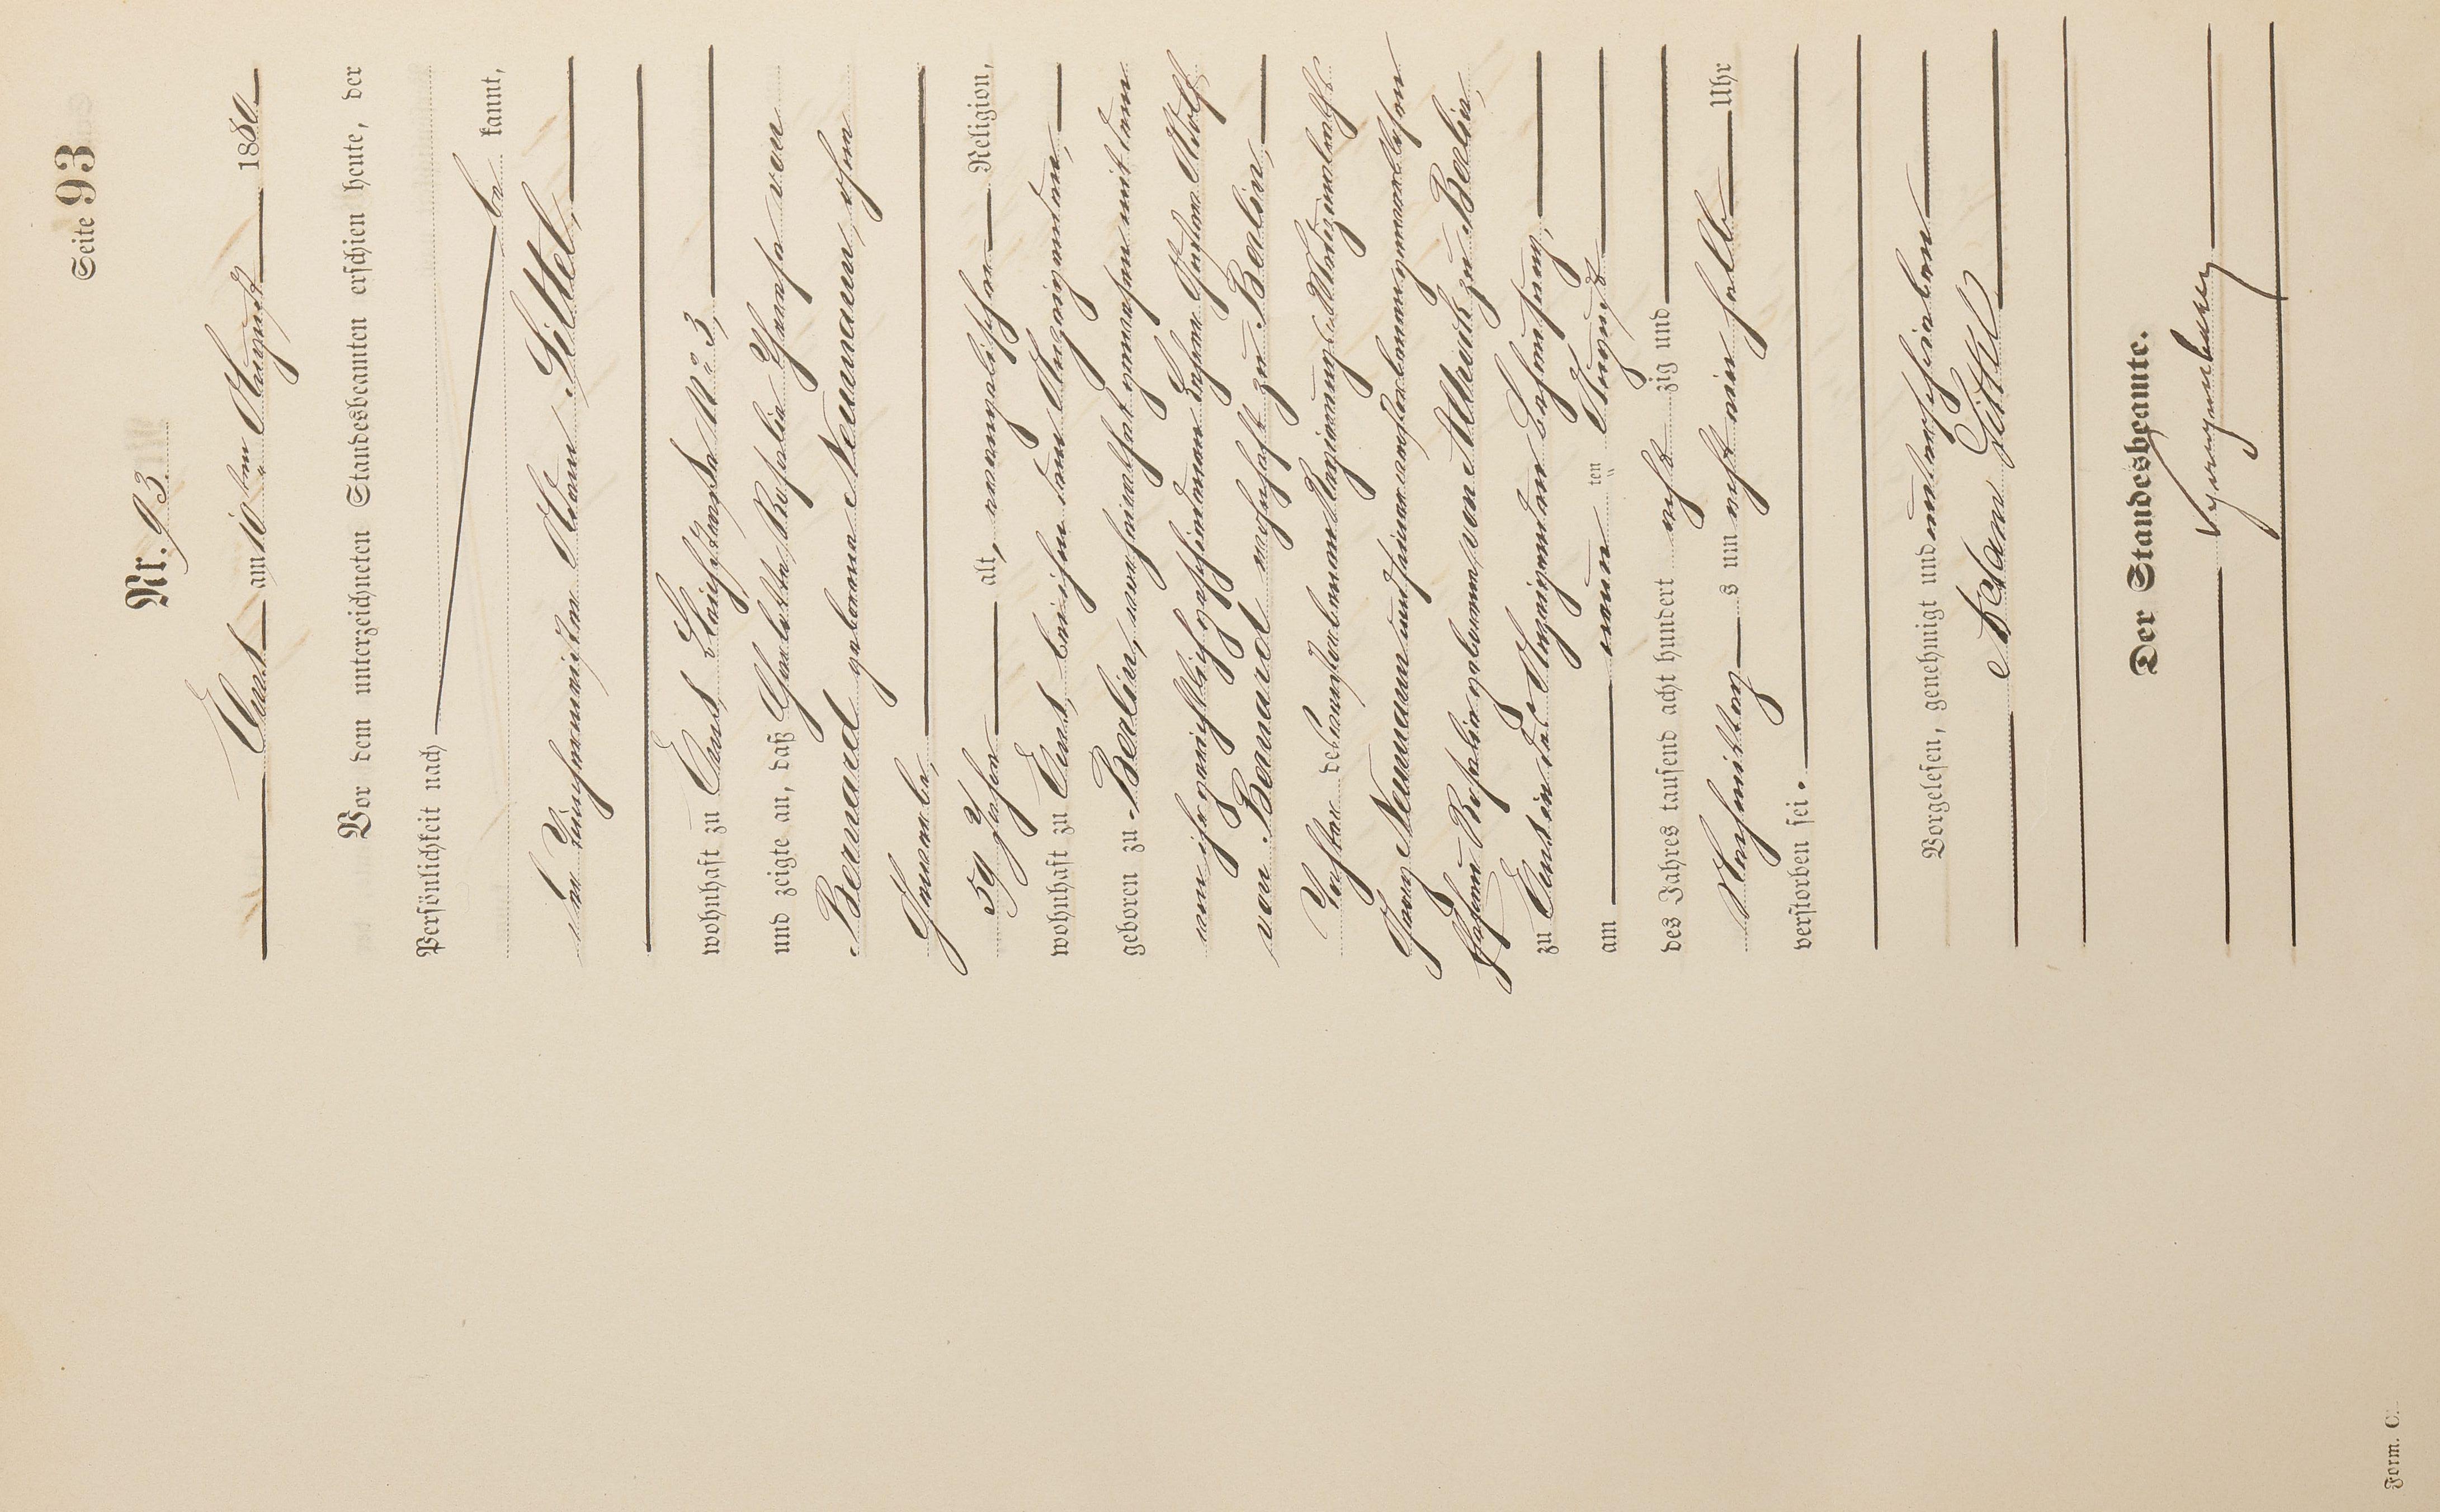 Seite 93
Nr. 93.
Ems am 10ten August 1880.
Vor dem unterzeichneten Standesbeamten erschien heute, der
Persönlichkeit nach
be kannt,
der Tünchermeister Adam Sittel,
wohnhaft zu Ems Nr. 3,
und zeigte an, daß Rosalie Therese von
Bernard geborene Neumann, ohne
Gewerbe,
59 Jahre alt, evangelischer Religion,
wohnhaft zu Ems bei ihm dem Anzeigenden,
geboren zu Berlin, verheirathet gewesen mit dem
von ihr gerichtlich geschiedenen Adolf
von Bernard wohnhaft zu Berlin,
Tochter des verstorbenen Regierungs u. Medizinalraths
Georg Neumann und seiner verstorbenen gewesenen
Ehefrau Rosalie geborenen von Alberti zu Berlin,
zu Ems in des Anzeigenden Behausung,
am neun ten August
des Jahres tausend acht hundert acht zig und
Nachmittag s um acht ein halb Uhr
verstorben sei.
Vorgelesen, genehmigt und unterschrieben
Adam Sittel
Der Standesbeamte.
Form. C.